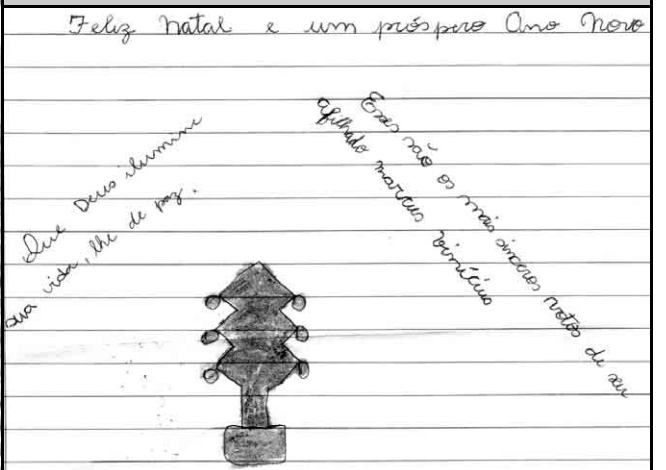 Feliz natal e um próspero Ano novo
Que Deus ilumine
sua vida, lhe de paz.
Esses são os mais sinceros votos de seu
afilhado marcus vinícius